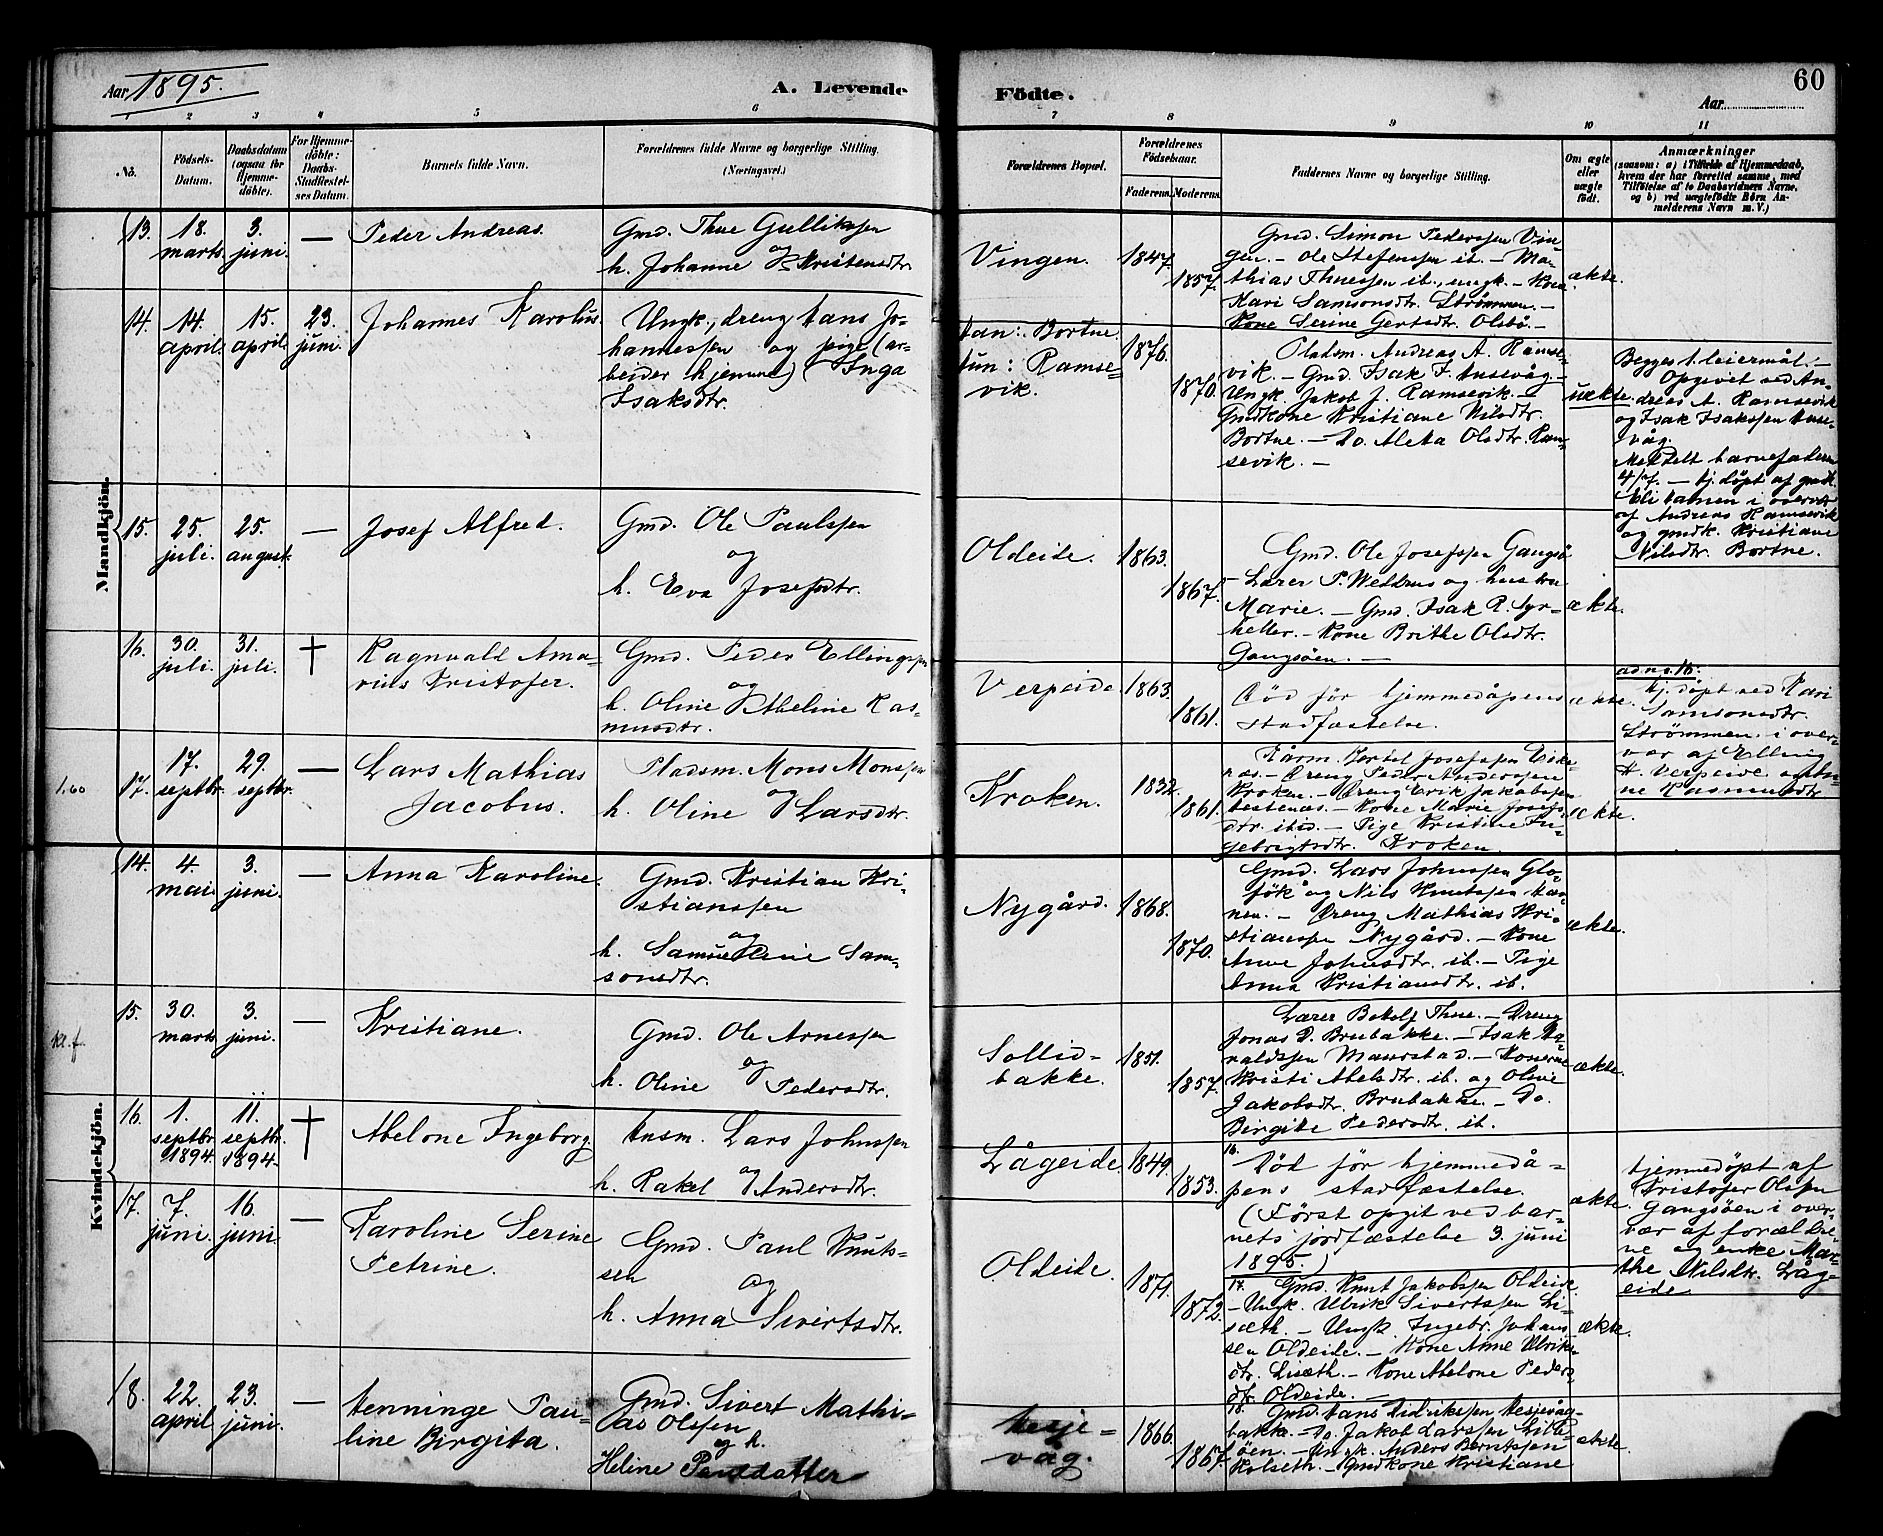 Aar 1895.
A. Levende
Födte.
60
Aar
1
2
3
4
5
6
7
8
9
10
11
No.
Födsels-
Datum.
Daabsdatum
(ogsaa for
Hjemme-
döbte).
For Hjemme-
döbte:
Daabs-
Stadfæstel-
ses Datum.
Barnets fulde Navn.
Forældrenes fulde Navne og borgerlige Stilling.
(Næringsvei.)
Forældrenes Bopæl.
Forældrenes
Födselsaar.
Faderens.
Moderens.
Faddernes Navne og borgerlige Stilling.
Om ægte
eller
uægte
födt.
Anmærkninger
(saasom: a) i Tilfælde af Hjemmedaab,
hvem der har forrettet samme, med
Tilföielse af to Daabsvidners Navne,
og b) ved uægtefödte Börn An-
melderens Navn m. V.)
Mandkjön.
13.
18.
marts
3.
juni.
—
Peder Andreas.
Gmd. Thue Gulliksen
og
h. Johanne Kristensdtr.
Vingen.
1847.
1857.
Gmd. Simon Pederssen Vin-
gen. – Ole Stefenssen ib. – Ma-
thias Thuessen ib., ungk. – Kone
Kari Samsonsdtr. Strømmen. –
Kone Serine Gertsdtr. Olsbö. –
ækte.
14.
14.
april.
15.
april.
23.
juni.
Johannes Karolus
Ungk., dreng Hans Jo-
hannessen og pige (ar-
beider hjemme) Inga
Isaksdtr.
Han: Bortne.
Hun: Ramse-
vik.
1876.
1870.
Pladsm. Andreas A. Ramse-
vik. – Gmd. Isak I. Husevåg –
Ungk. Jakob J. Ramsevik. –
Gmdkone Kristiane Nilsdtr.
Bortne. – Do. Aleta Olsdtr. Ram-
sevik. –
uækte.
Begges 1. leiermål. –
Opgivet ved An-
dreas A. Ramsevik
og Isak Isakssen Huse-
våg.
Meddelt barnefaderen
4/7. – hj. döpt af gmdk.
Eli Hamen i overvær
af Andreas Ramsevik
og gmdk. Kristiane
Nilsdtr. Bortne.
15.
25.
juli.
25.
august.
—
Josef Alfred.
Gmd. Ole Paulssen
og
h. Eva Josefsdtr.
Oldeide.
1863.
1867.
Gmd. Ole Josefssen Gangsö
– Lærer P. Welhus og hustru
Marie. – Gmd. Isak R. Syr-
heller. – Kone Brithe Olsdtr.
Gangsöen. –
ækte.
16.
30.
juli.
31.
juli.
†
Ragnvald Ama-
rius Kristofer.
Gmd. Peder Ellingssen
og
h. Oline Abeline Ras-
musdtr.
Verpeide.
1863.
1861.
Död för hjemmedåpens
stadfæstelse.
ækte.
ad no. 16:
hj. döpt ved Kari
Samsonsdtr.
Strömmen i over-
vær af Elling
H. Verpeide og
Rasmusdtr.
1.60
17.
17.
septbr.
29.
septbr.
—
Lars Mathias
Jacobus.
Pladsm. Mons Monssen
og
h. Oline Larsdtr.
Kroken.
1832.
1861.
Kårm. Bertel Josefssen Eike-
næs. – Dreng Peder Anderssen
Kroken. – Dreng Erik Jakobssen
Hestenæs. – Kone Marie Josefs-
dtr. ibid. – Pige Kristine In-
gebrigtsdtr. Kroken.
ækte.
Kvindekjön.
14.
4.
mai.
3.
juni.
—
Anna Karoline.
Gmd. Kristian Kri-
stianssen
og
h. Samueline Sam-
sonsdtr.
Nygård.
1868.
1870.
Gmd. Lars Johnssen Glo-
fök og Nils Knutssen Han-
nen. – Dreng Mathias Kri-
stianssen Nygård. – Kone
Anne Johnsdtr. ib. – Pige
Anna Kristiansdtr. ib.
ækte.
Kl. f.
15.
30.
marts
3.
juni.
—
Kristiane.
Gmd. Ole Arnessen
og
h. Oline Pedersdtr.
Sollid-
bakke.
1851.
1857.
Lærer Botolf Thue. – Dreng
Jonas D. Brubakke. – Isak Ha-
raldssen Maurstad. – Konerne
Kristi Abelsdtr. ib. og Oline
Jakobsdtr. Brubakke. – Do.
Birgitte Pedersdtr. ib.
ækte.
16.
1.
septbr.
1894.
11.
septbr.
1894.
†
Abelone Ingeborg.
Husm. Lars Johnssen
og
h. Rakel Andersdtr.
Lågeide.
1849.
1853.
16.
Död för hjemmedå-
pens stadfæstelse.
(Först opgit ved bar-
nets jordfæstelse 3. juni
1895.)
ækte.
Hjemmedöpt af
Kristofer Olssen
Gangsöen i over-
vær af forældre-
ne og enke Mar-
the Nilsdtr. Låg-
eide.
17.
7.
juni.
16.
juni.
—
Karoline Serine
Petrine.
Gmd. Paul Knuts-
sen
og
h. Anna Sivertsdtr.
Oldeide.
1871.
1872.
17.
Gmd. Knut Jakobssen Oldeide.
– Ungk. Ulrik Sivertssen Li-
sæth. – Ungk. Ingebr. Johans-
sen Oldeide. – Kone Anne Ulriks-
dtr. Lisæth. – Kone Abelone Peders-
dtr. Oldeide. –
ækte.
18.
22.
april
23.
juni.
—
Henninge Pau-
line Birgita.
Gmd. Sivert Mathi-
as Olsen
og h.
Heline Pedersdatter
Hesje-
våg.
1866.
1867.
18.
Gmd. Hans Didrikssen Hesjevåg-
bakke. – Do. Jakob Larssen Lille-
öen. – Ungk. Anders Berntssen
Kolseth. – Gmdkone Kristiane
ækte.